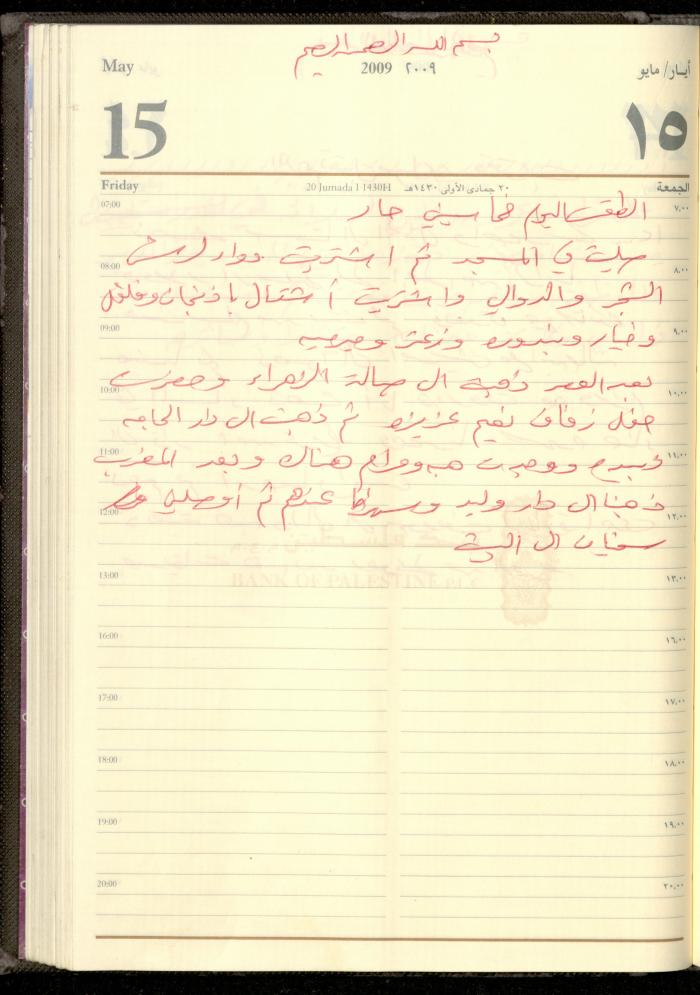 بسم الله الرحمن الرحيم
May 2009 ٢٠٠٩ أيار/ مايو
15 ١٥
Friday 20 Jumada I 1430H ٢٠ جمادى الأولى ١٤٣٠هـ الجمعة
07:00 ٧,٠٠
الطقس اليوم خماسيني حار
صليت في المسجد ثم اشتريت دواء لرش
08:00 ٨,٠٠
الشجر والدوالي واشتريت أشتال باذنجان وفلفل
09:00 ٩,٠٠
وخيار وبندوره وزعتر وميرميه
بعد العصر ذهبت الى صالة الزهراء وحضرت
10:00 ١٠,٠٠
حفل زفاف نعيم عزيزه ثم ذهبت الى دار الحاجه
11:00 ١١,٠٠
ووجدت هبه ومرام هناك وبعد المغرب
ذهبنا الى دار وليد وسهرنا عندهم ثم أوصلني
12:00 ١٢,٠٠
سفيان الى البيت
13:00 ١٣,٠٠
BANK OF PALESTINE P.L.C
16:00 ١٦,٠٠
17:00 ١٧,٠٠
18:00 ١٨,٠٠
19:00 ١٩,٠٠
20:00 ٢٠,٠٠